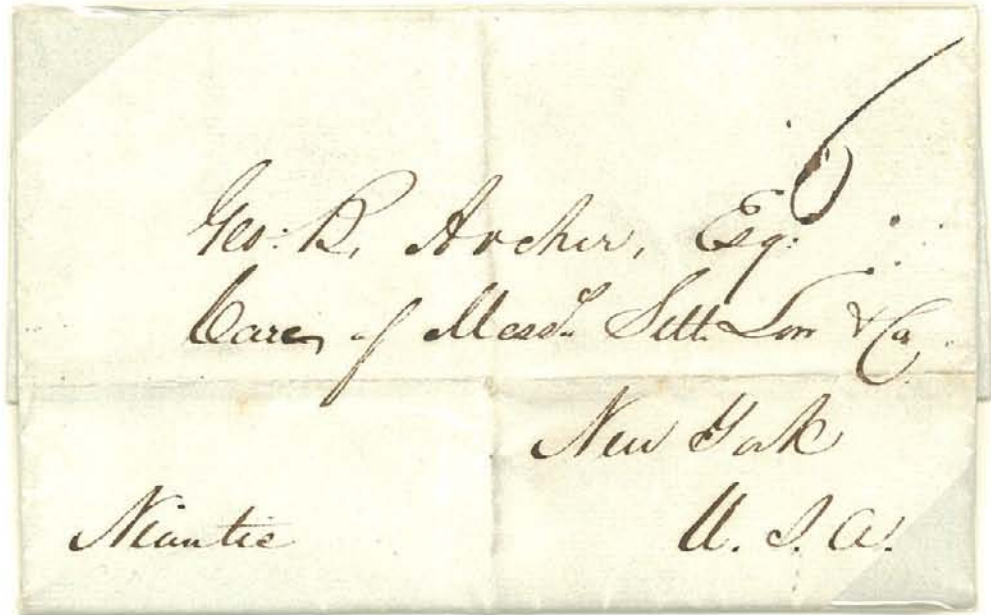 6
Geo: R. Archer, Esq:
Care of Mess.rs Seth Low & Co.
New York
Niantic U. S. A.